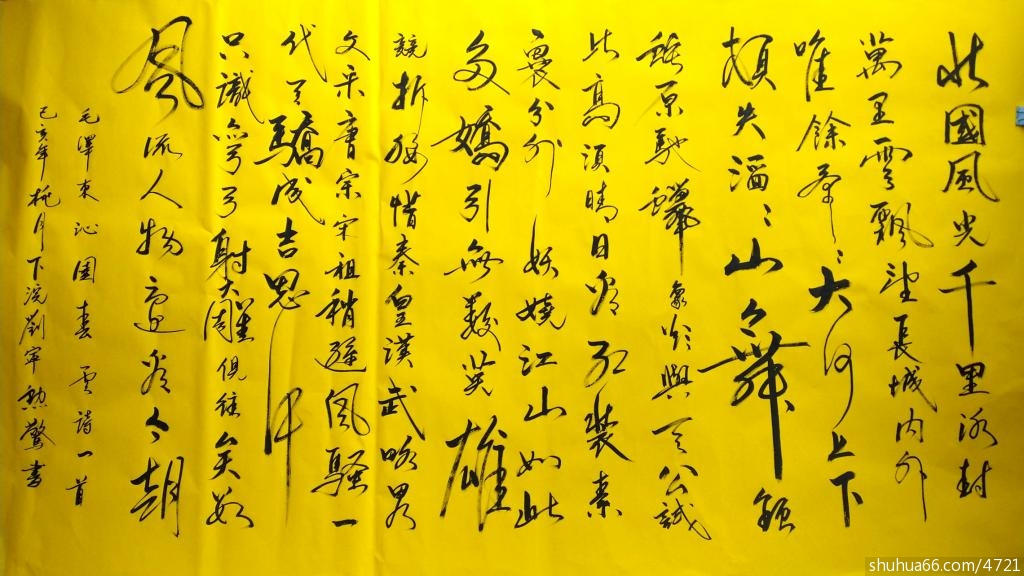 北國風光千里冰封
萬里雪飄望長城内外
唯餘莽〻大河上下
頓失滔〻山舞銀
蛇原馳蠟象欲與天公試
比高須晴日看紅裝素
裹分外妖嬈江山如此
多嬌引無數英雄
競折腰惜秦皇漢武略
文采唐宗宋祖稍遜風騷一
代天驕成吉思汗
只識彎弓射大雕俱往矣數
風流人物還看今朝
毛澤東沁園春雪詩一首
己亥年桃月下浣劉勲書
shuhua66.com/4721